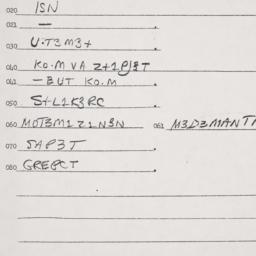 020 ISN
021 —
030 U.T3M3+
040 KO.M VA Z+1PJ3T
041 —BUT KO.M
050 S+L1K3RC
060 MOT3M1Z1N3N 061 M3D3MANT
070 JAP3T
080 GREPCT